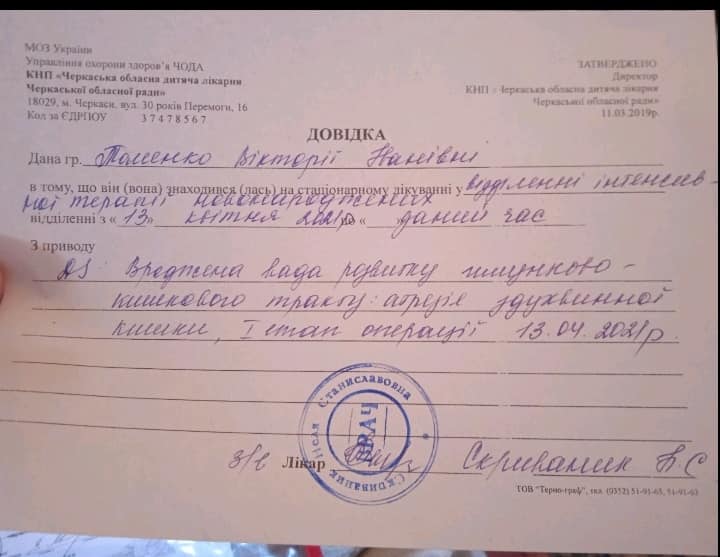 МОЗ України
Управління охорони здоров'я ЧОДА
КНП «Черкаська обласна дитяча лікарня
Черкаської обласної ради»
18029, м. Черкаси, вул. 30 років Перемоги, 16
Код за ЄДРПОУ 37478567
ЗАТВЕРДЖЕНО
Директор
КНП «Черкаська обласна дитяча лікарня
Черкаської обласної ради»
11.03.2019р.
ДОВІДКА
Дана гр. Томенко Вікторії Іванівни
в тому, що він (вона) знаходився (лась) на стаціонарному лікуванні у відділенні інтенсив-
ної терапії новонароджених
відділенні з « 13 » квітня 2021р по « » даний час
З приводу
DS: Вроджена вада розвитку шлунково-
кишкового тракту: атрезія здухвинної
кишки, I етап операції 13.04.2021р.
Станиславовна
ВРАЧ
Скриваник
З/в Лікар Скриваник
ТОВ "Терно-граф", тел. (0352) 51-91-63, 51-91-63